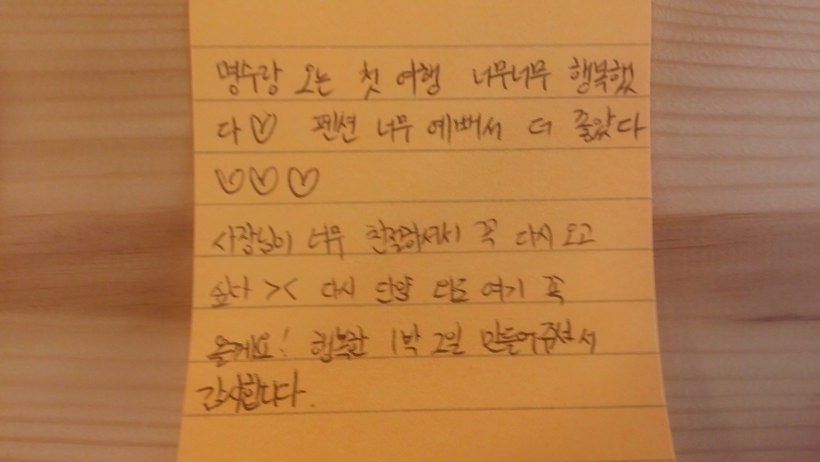 명수랑 오는 첫 여행 너무너무 행복했
다♡ 펜션 너무 예뻐서 더 좋았다
♡♡♡
사장님이 너무 친절하셔서 꼭 다시 오고
싶다 >< 다시 단양 와도 여기 꼭
올게요! 행복한 1박 2일 만들어주셔서
감사합니다.